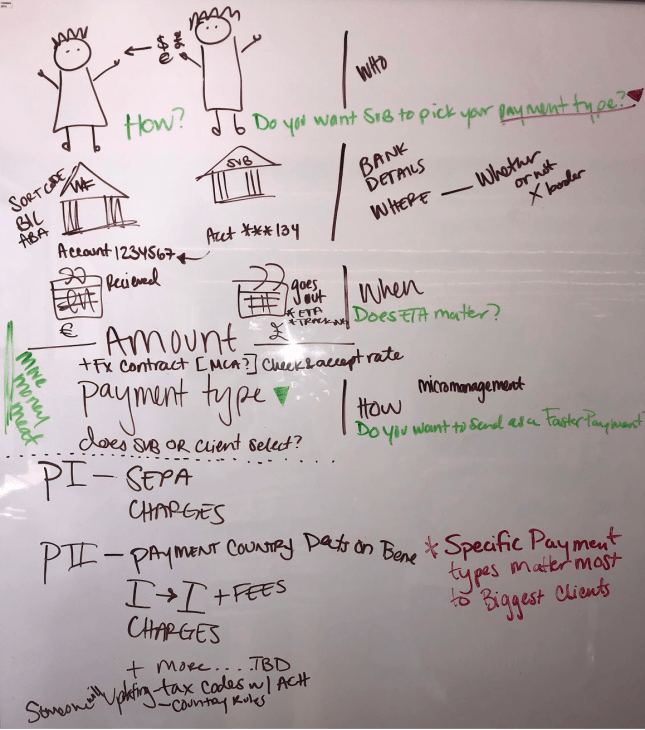 $ £
€
WHO
How?
Do you want SVB to pick your payment type?
SORT CODE
BIC
ABA
WF
SVB
BANK
DETAILS
WHERE — Whether
or not
X border
Account 1234567
Acct ***134
Recieved
goes
out
* ETA
* TRACK
When
Does ETA matter?
€
£
Amount
+ FX contract [MCA?] Check & accept rate
More
money
meat
payment type
does SVB OR Client select?
HOW
micromanagement
Do you want to send as a Faster Payment
PI — SEPA
CHARGES
PII — PAYMENT COUNTRY Data on Bene
I → I + FEES
CHARGES
+ more.....TBD
Someone will Updating tax codes w/ ACH
— Country Rules
* Specific Payment
types matter most
to Biggest Clients